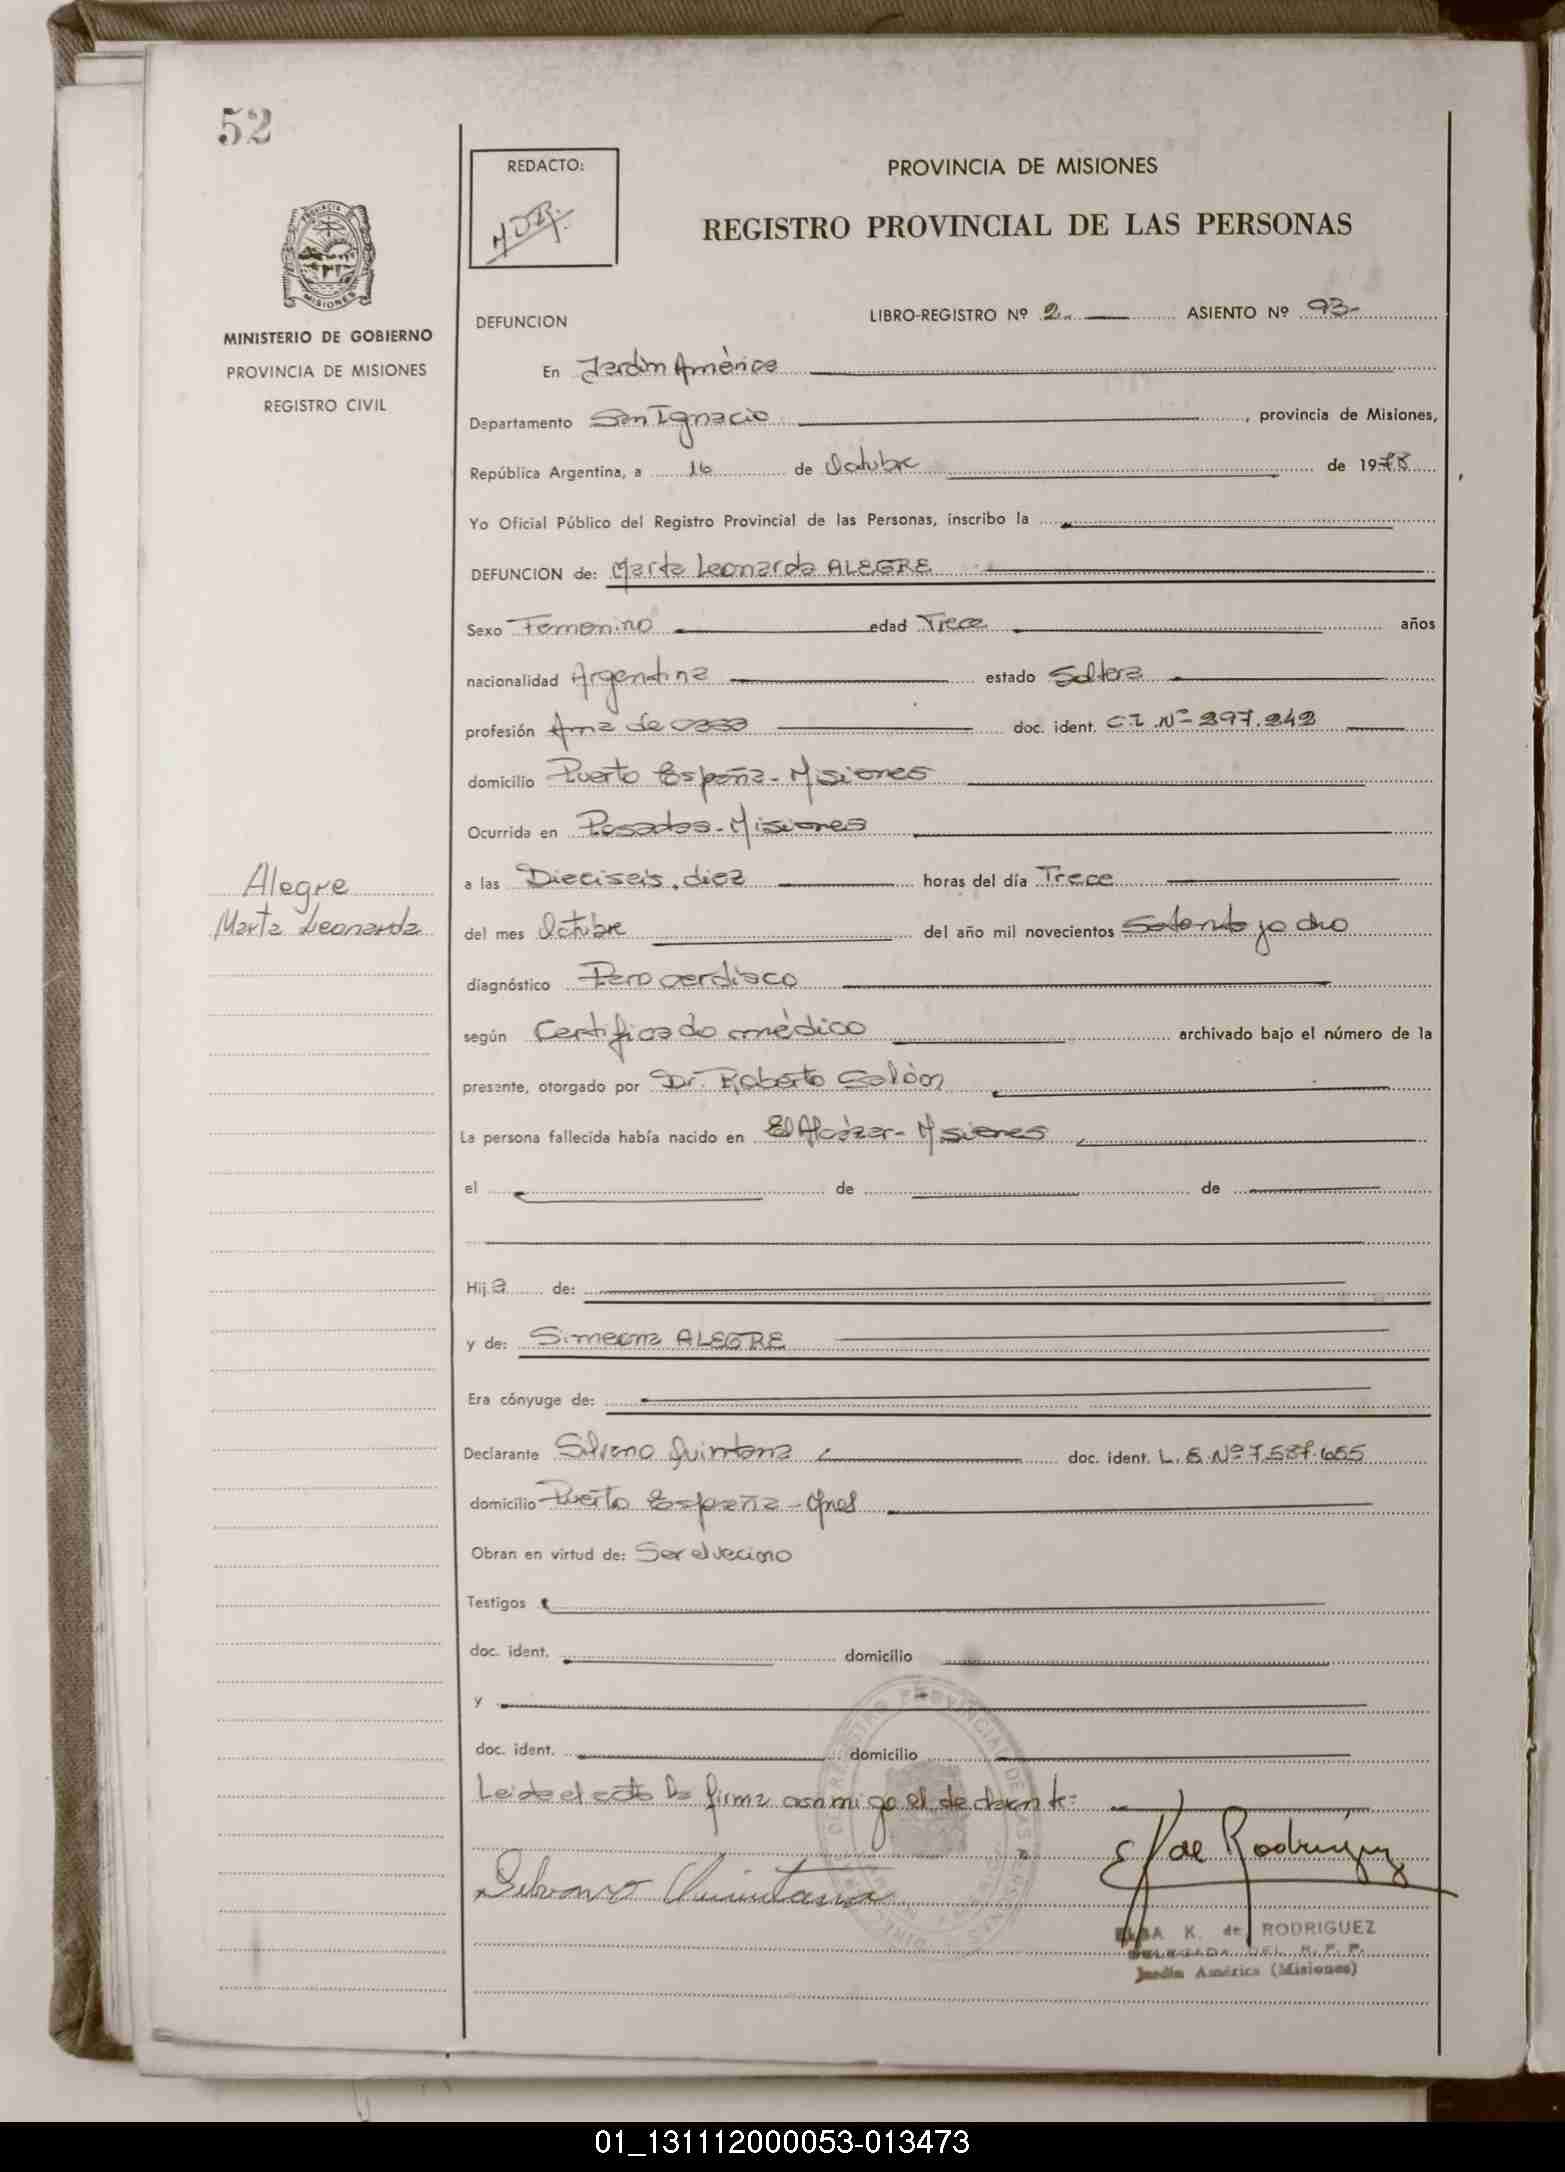 52
REDACTO:
PROVINCIA DE MISIONES
REGISTRO PROVINCIAL DE LAS PERSONAS
MISIONES
MINISTERIO DE GOBIERNO
PROVINCIA DE MISIONES
REGISTRO CIVIL
DEFUNCION LIBRO-REGISTRO Nº 2. ASIENTO Nº 93-
En Jardín América
Departamento San Ignacio, provincia de Misiones,
República Argentina, a 16 de Octubre de 1978
Yo Oficial Público del Registro Provincial de las Personas, inscribo la
DEFUNCION de: Marta Leonarda ALEGRE
Sexo Femenino edad Trece años
nacionalidad Argentina estado Soltera
profesión Ama de casa doc. ident. C.I. Nº 297.242
domicilio Puerto España - Misiones
Ocurrida en Posadas - Misiones
Alegre
Marta Leonarda
a las Dieciseis, diez horas del día Trece
del mes Octubre del año mil novecientos Setenta y ocho
diagnóstico Paro cardiaco
según Certificado médico archivado bajo el número de la
presente, otorgado por Dr. Roberto
La persona fallecida había nacido en El Alcázar - Misiones
el de de
Hija de:
y de: Simeona ALEGRE
Era cónyuge de:
Declarante Silvano Quintana doc. ident. L.E. Nº 7.587.655
domicilio Puerto España - Mnes
Obran en virtud de: Ser el vecino
Testigos
doc. ident. domicilio
y
doc. ident. domicilio
Leida el acta la firma conmigo el declarante:
Silvano Quintana
E K de Rodriguez
ELSA K. de RODRIGUEZ
DELEGADA DEL R. P. P.
Jardín América (Misiones)
01_131112000053-013473